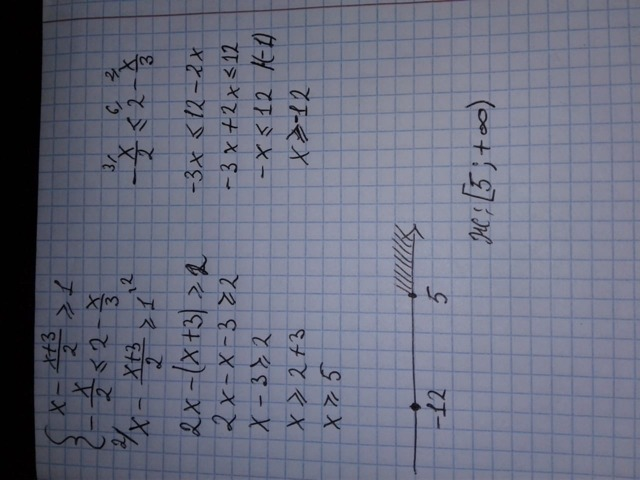 { x - x+3/2 ≥ 1
- x/2 ≤ 2 - x/3
2/ x - x+3/2 ≥ 1 ·2
2x - (x+3) ≥ 2
2x - x - 3 ≥ 2
x - 3 ≥ 2
x ≥ 2+3
x ≥ 5
3, - x/2 ≤ 6, 2 - 2, x/3
-3x ≤ 12 - 2x
-3x + 2x ≤ 12
-x ≤ 12 /(-1)
x ≥ -12
-12 5
Ж: [5; +∞)